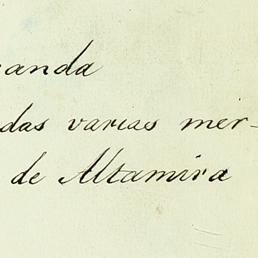 anda
das varias mer-
de Altamira